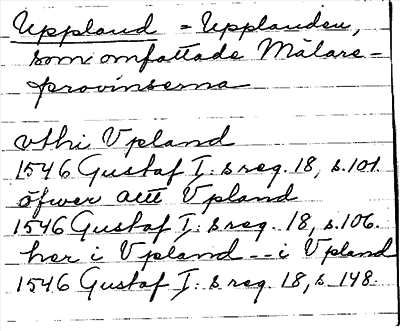 Uppland = Upplanden,
som omfattade Mälare-
provinserna
vthi Vpland
1546 Gustaf I:s reg. 18, s. 101.
öfwer alt Vpland
1546 Gustaf I:s reg. 18, s. 106.
her i Vpland -- i Vpland
1546 Gustaf I:s reg. 18, s. 148.